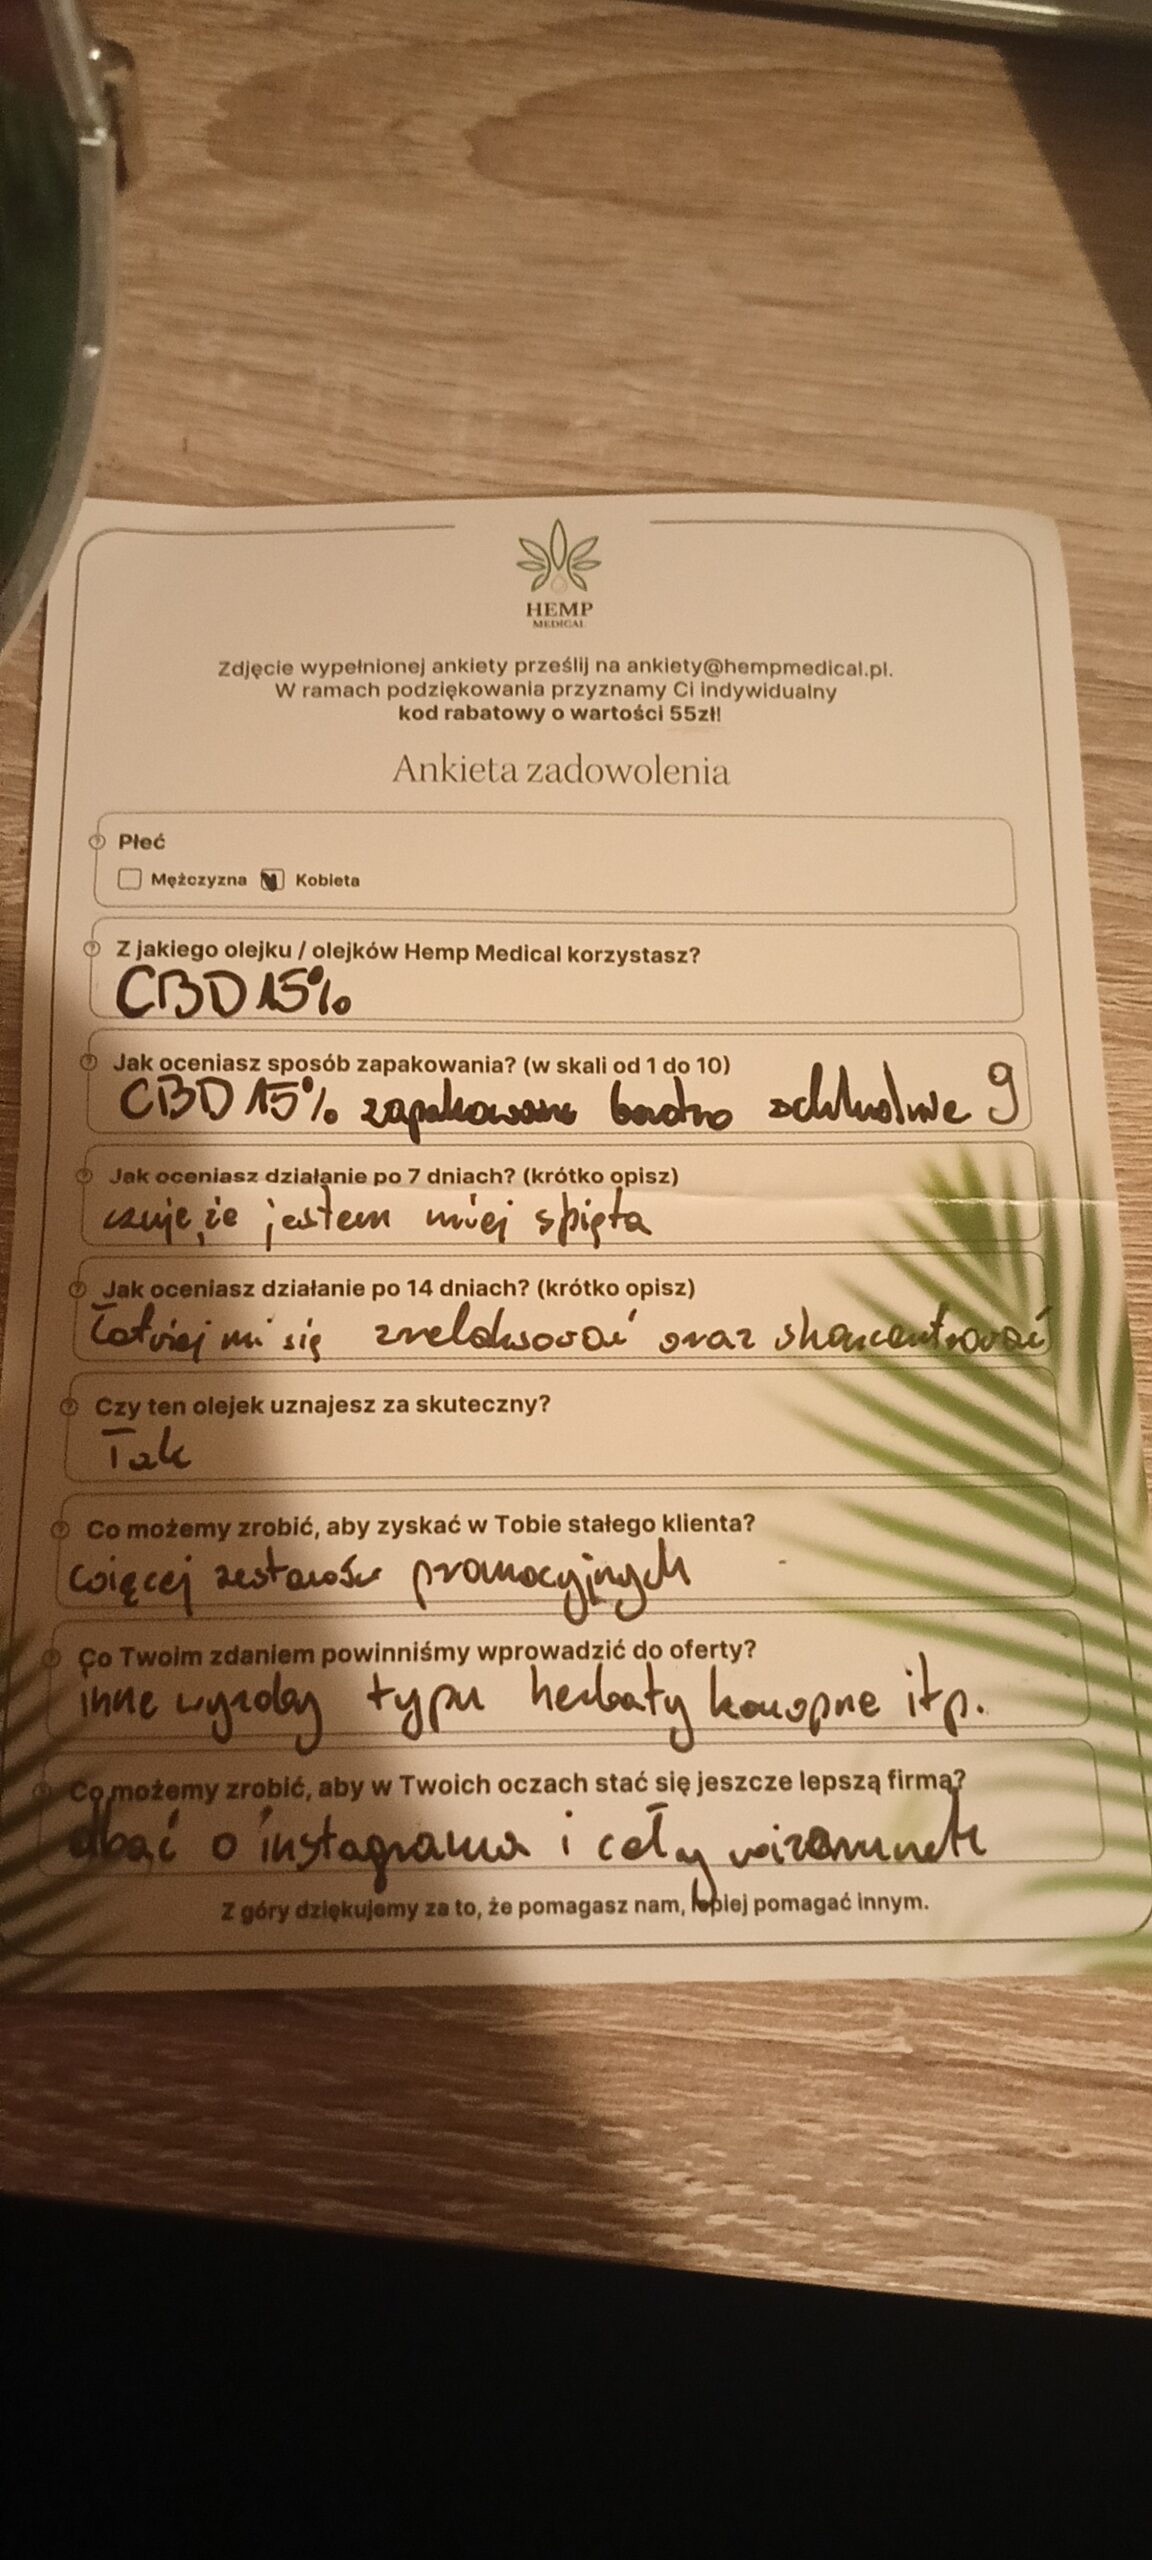 HEMP
MEDICAL
Zdjęcie wypełnionej ankiety prześlij na ankiety@hempmedical.pl.
W ramach podziękowania przyznamy Ci indywidualny
kod rabatowy o wartości 55zł!
Ankieta zadowolenia
Płeć
Mężczyzna Kobieta
Z jakiego olejku / olejków Hemp Medical korzystasz?
CBD 15%
Jak oceniasz sposób zapakowania? (w skali od 1 do 10)
CBD 15% zapakowane bardzo 9
Jak oceniasz działanie po 7 dniach? (krótko opisz)
czuję, że jestem mniej spięta
Jak oceniasz działanie po 14 dniach? (krótko opisz)
Łatwiej mi się zrelaksować oraz skoncentrować
Czy ten olejek uznajesz za skuteczny?
Tak
Co możemy zrobić, aby zyskać w Tobie stałego klienta?
więcej zestawów promocyjnych
Co Twoim zdaniem powinniśmy wprowadzić do oferty?
inne wyroby typu herbaty konopne itp.
Co możemy zrobić, aby w Twoich oczach stać się jeszcze lepszą firmą?
dbać o instagrama i cały wizerunek
Z góry dziękujemy za to, że pomagasz nam, lepiej pomagać innym.